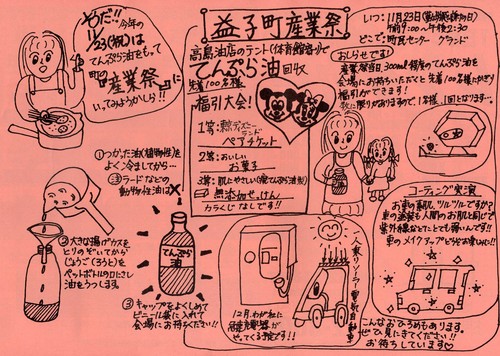 やだ!!今年の
11/23(祝)は
てんぷら油をもって
町の『産業祭』に
いってみようかしら!!
①つかった油(植物性)を
よく冷ましてから…
注 ラードなどの
動物性油は✕
②大きな揚げカスを
とりのぞいてから
じょうご(ろうと)を
ペットボトルの口にさし
油をうつします。
てんぷら
油
③キャップをよくしめて
ビニール袋に入れて
会場にお持ちください!!
益子町産業祭
高島油店のテント(体育館香り)で
てんぷら油回収
先着100名様
福引大会!
1等:東京ディズニー
ランド
ペアチケット
2等:おいしい
お菓子
3等:
無添加せっけん
カラくじなしです!!
いつ:11月23日
午前9:00〜午後2:30
どこで:町民センター グランド
おしらせです!
産業祭当日、300ml程度のてんぷら油を
会場にお持ちいただくと先着100名様にかぎり
福引ができます!
数に限りがありますので、1名様、1回となります…
コーティング実演
お車の素肌、ツルツルですか?
車の塗装も人間のお肌と同じで
紫外線などでとても弱いんです!!
車のメイクアップどうぞお楽しみに!!
人気のソーラー電気自動車
12月、わが社に
やってくる予定です!!
こんなおひろめもあります。
ぜひ見にきてください!!
お待ちしています♡